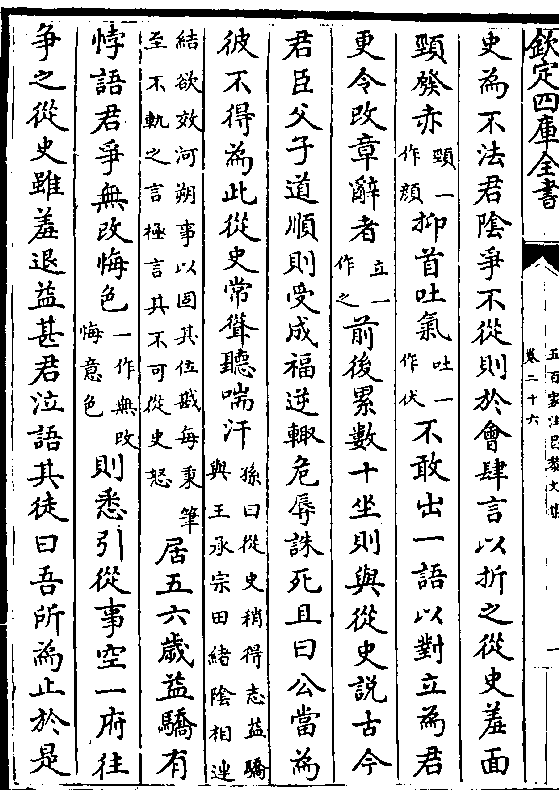 欽定四庫全書
五百家注昌黎文集
卷二十六
一
史為不法君陰爭不從則於會肆言以折之從史羞面
頸發赤頸一作顔抑首吐氣吐一作伏不敢出一語以對立為君
更令改章辭者立一作之前後累數十坐則與從史說古今
君臣父子道順則受成福逆輙危辱誅死且曰公當為
彼不得為此從史常聳聽喘汗孫曰從史稍得志益驕與王承宗田緒陰相連
結欲效河朔事以固其位戡每秉筆至不軌之言極言其不可從史怒居五六歲益驕有
悖語君爭無改悔色一作無改悔意色則悉引從事空一府往
爭之從史雖羞退益甚君泣語其徒曰吾所為止於是